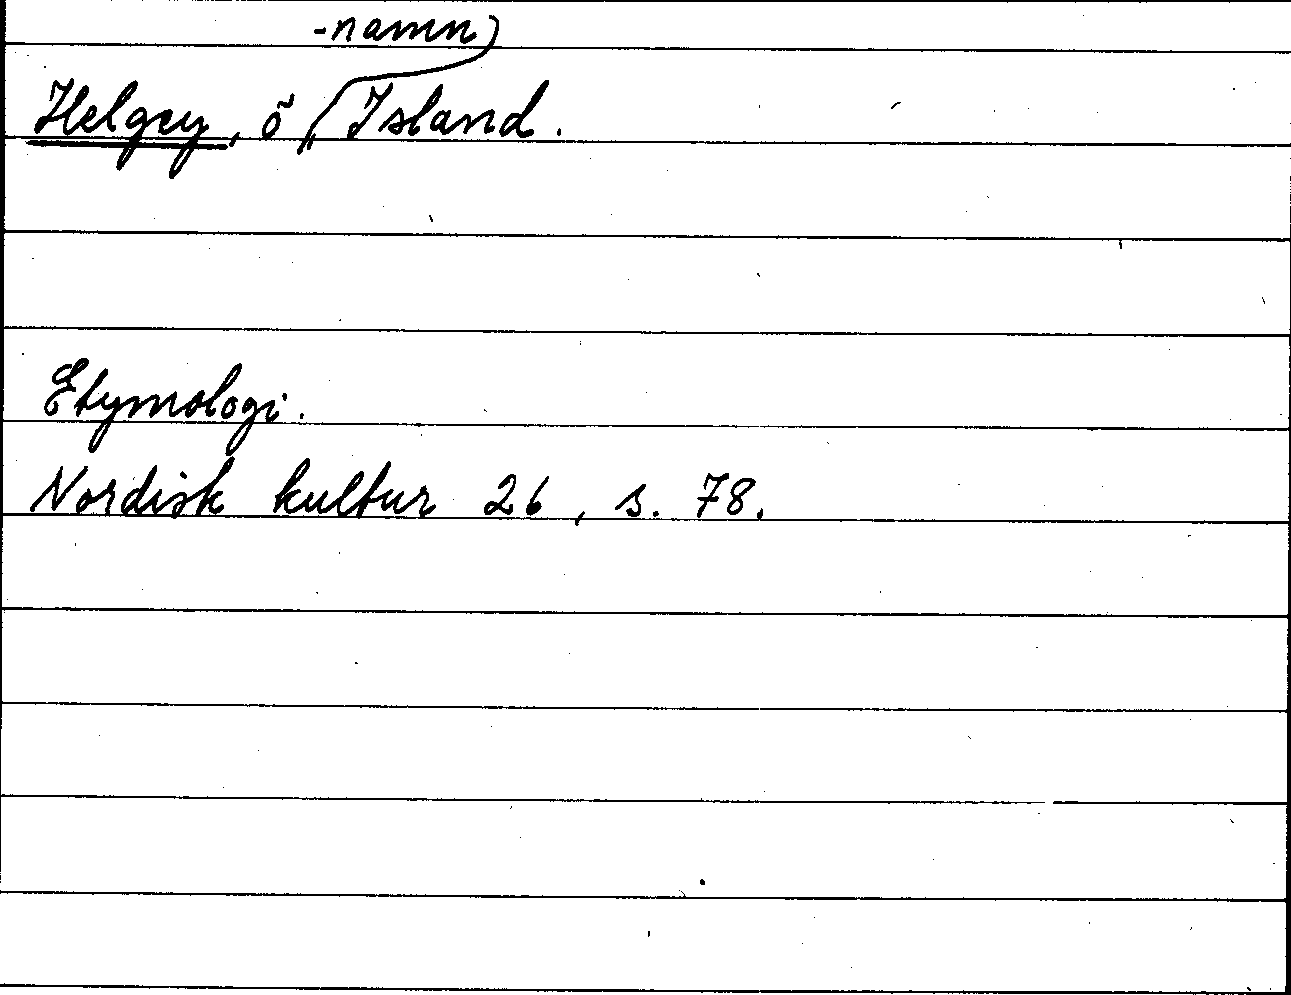 -namn
Helgey, ö, Island.
Etymologi.
Nordisk kultur 26, s. 78.